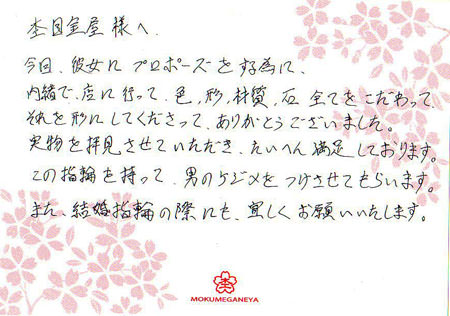 杢目金屋 様へ.
今回、彼女に プロポーズをする為に、
内緒で、店に行って、色、形、材質、石 全てをこだわって、
それを形にしてくださって、ありがとうございました。
実物を拝見させていただき、たいへん満足しております。
この指輪を持って、男のケジメをつけさせてもらいます。
また、結婚指輪の際にも、宜しくお願いいたします。
MOKUMEGANEYA